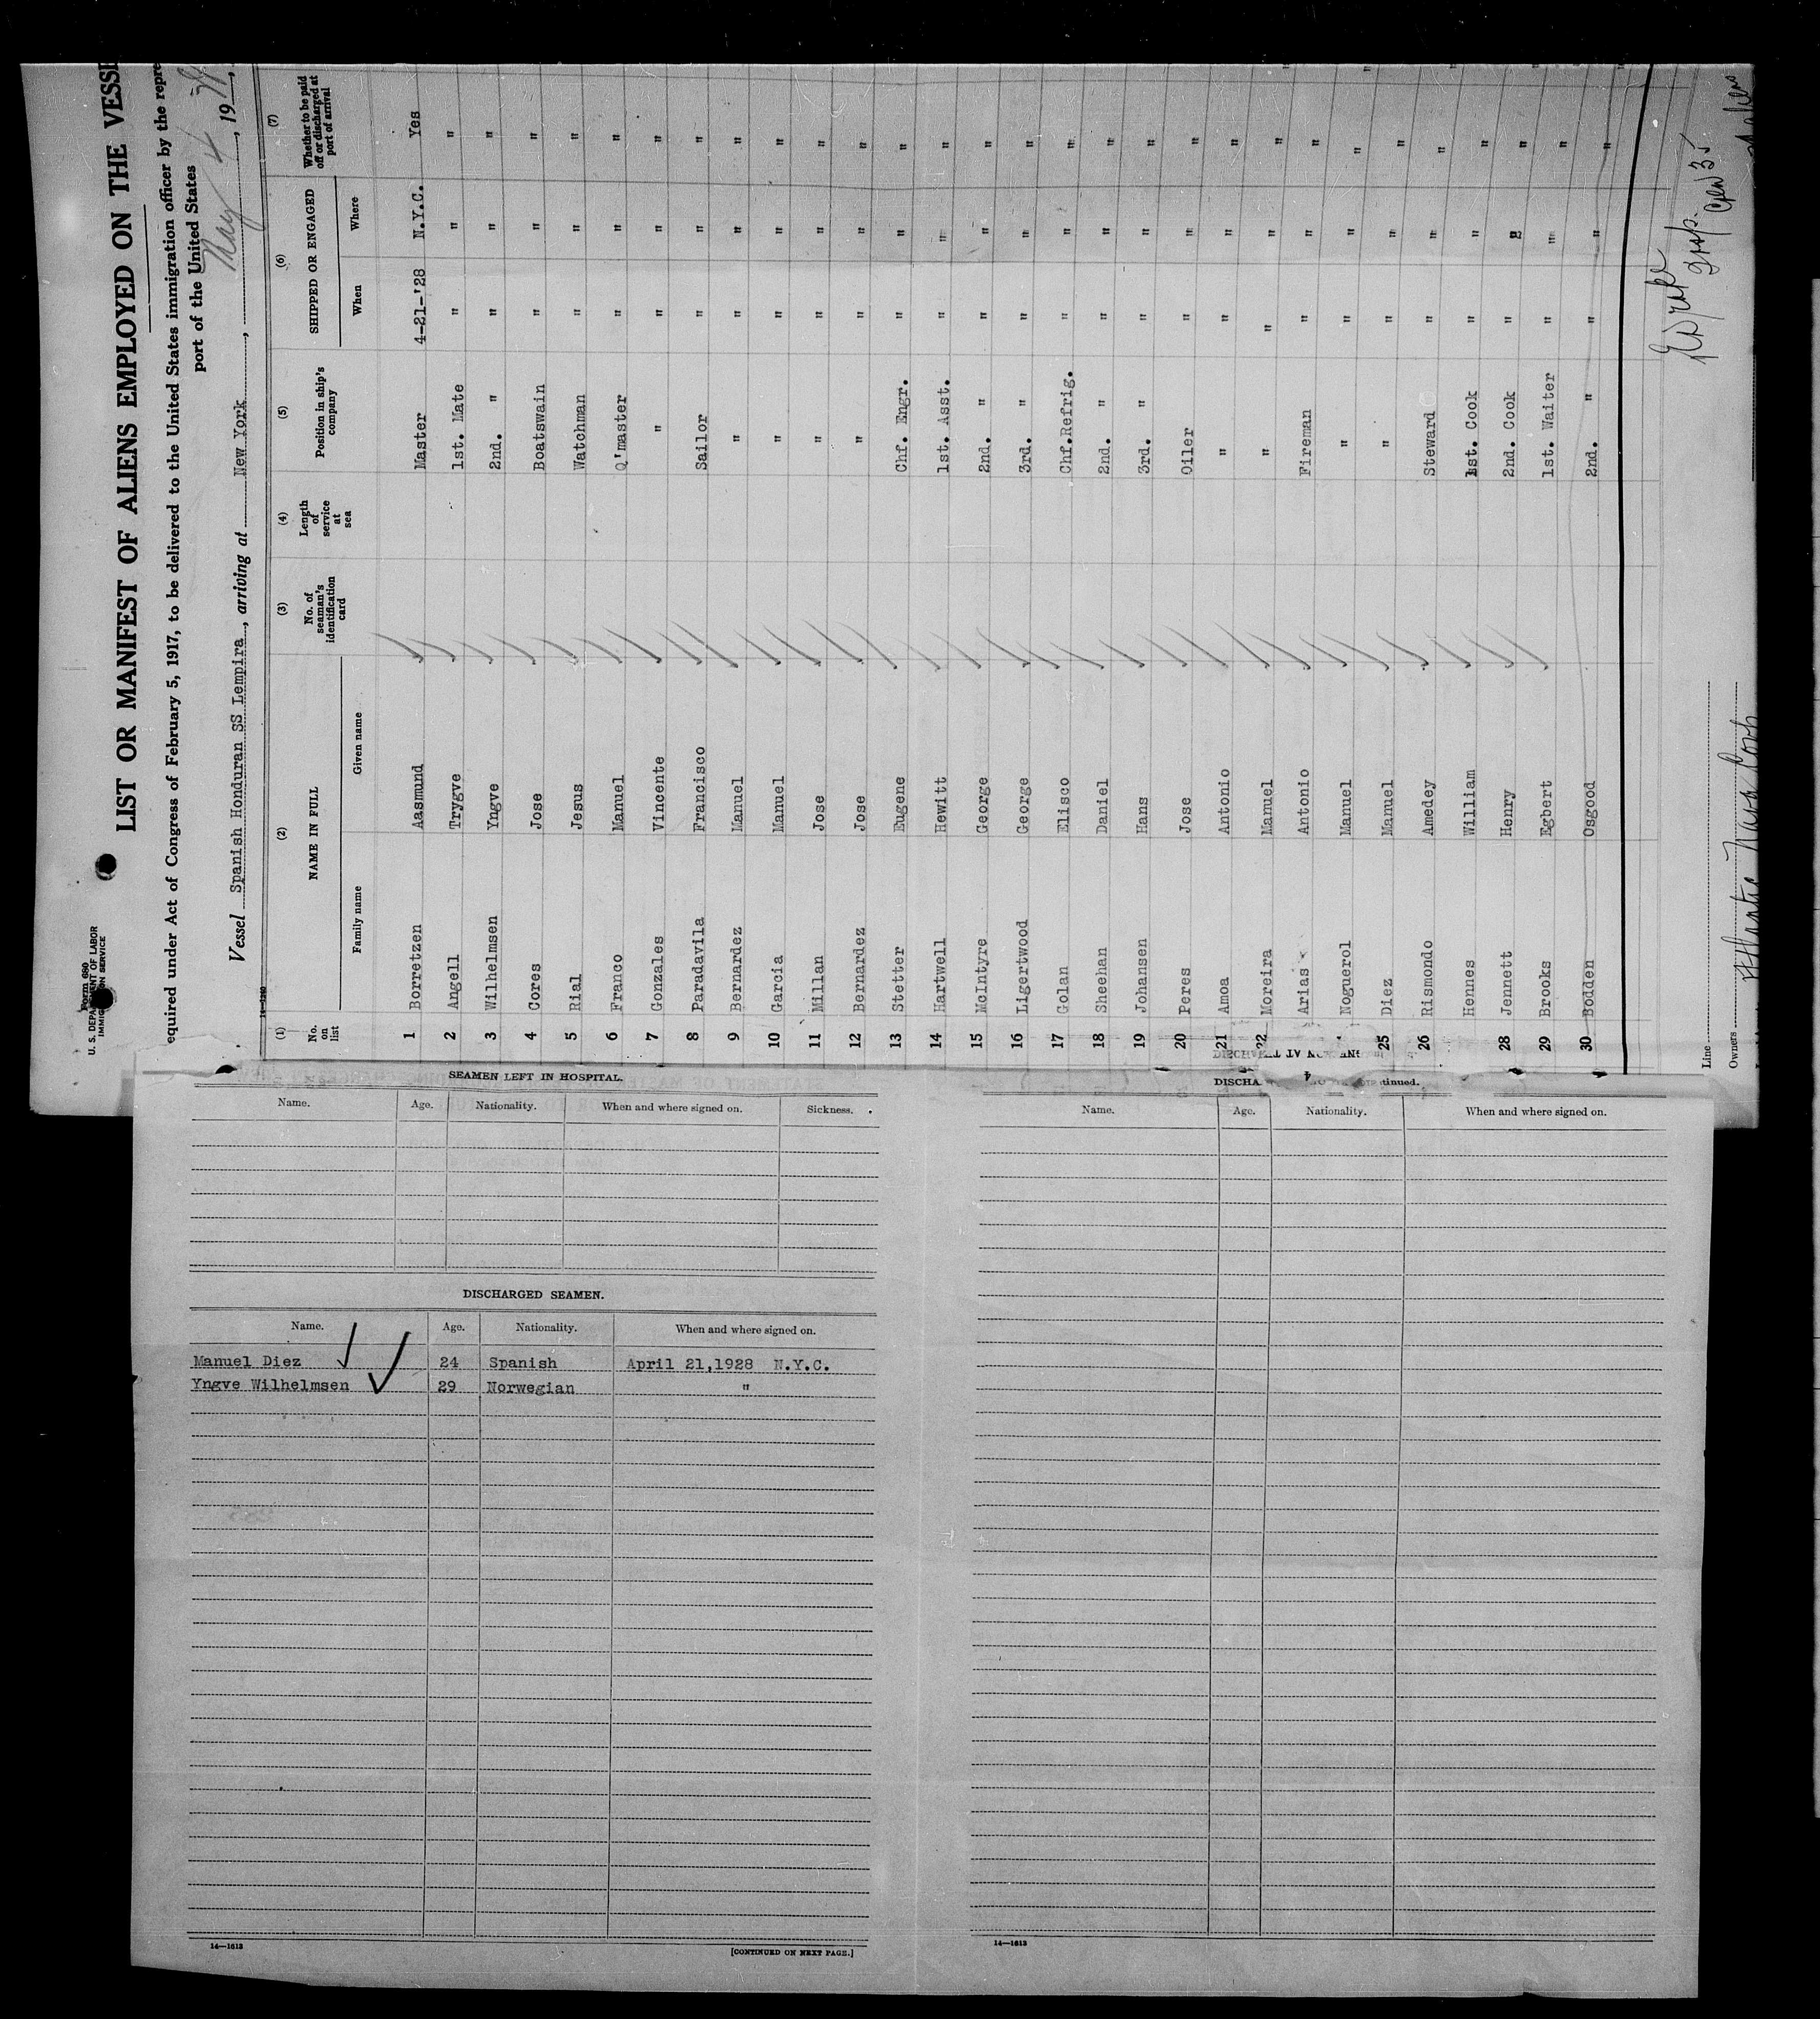 Form 680
U. S. DEPARTMENT OF LABOR
IMMIGRATION SERVICE
LIST OR MANIFEST OF ALIENS EMPLOYED ON THE VESSE
equired under Act of Congress of February 5, 1917, to be delivered to the United States immigration officer by the repre
port of the United States
Vessel Spanish Honduran SS Lempira, arriving at New York, May 4, 19
(1) (2) (3) (4) (5) (6) (7)
No. on list NAME IN FULL No. of seaman's identification card Length of service at sea Position in ship's company SHIPPED OR ENGAGED Whether to be paid off or discharged at port of arrival
Family name Given name When Where
1 Borretzen Aasmund Master 4-21-'28 N.Y.C. Yes
2 Angell Trygve 1st. Mate " " "
3 Wilhelmsen Yngve 2nd. " " " "
4 Cores Jose Boatswain " " "
5 Rial Jesus Watchman " " "
6 Franco Manuel Q'master " " "
7 Gonzales Vincente " " " "
8 Paradavila Francisco Sailor " " "
9 Bernardez Manuel " " " "
10 Garcia Manuel " " " "
11 Millan Jose " " " "
12 Bernardez Jose " " " "
13 Stetter Eugene Chf. Engr. " " "
14 Hartwell Hewitt 1st. Asst. " " "
15 McIntyre George 2nd. " " " "
16 Ligertwood George 3rd. " " " "
17 Golan Elisco Chf.Refrig. " " "
18 Sheehan Daniel 2nd. " " " "
19 Johansen Hans 3rd. " " " "
20 Peres Jose Oiler " " "
21 Amoa Antonio " " " "
22 Moreira Manuel " " " "
Arias Antonio Fireman " " "
Noguerol Manuel " " " "
25 Diez Manuel " " " "
26 Rismondo Amedey Steward " " "
Hennes William 1st. Cook " " "
28 Jennett Henry 2nd. Cook " " "
29 Brooks Egbert 1st. Waiter " " "
30 Bodden Osgood 2nd. " " " "
Line
Owners Atlantic Nav. Corp
SEAMEN LEFT IN HOSPITAL.
Name. Age. Nationality. When and where signed on. Sickness.
DISCHARGED SEAMEN.
Name. Age. Nationality. When and where signed on.
Manuel Diez 24 Spanish April 21,1928 N.Y.C.
Yngve Wilhelmsen 29 Norwegian "
14—1613
[CONTINUED ON NEXT PAGE.]
4
DISCHA tinued.
Name. Age. Nationality. When and where signed on.
14—1613